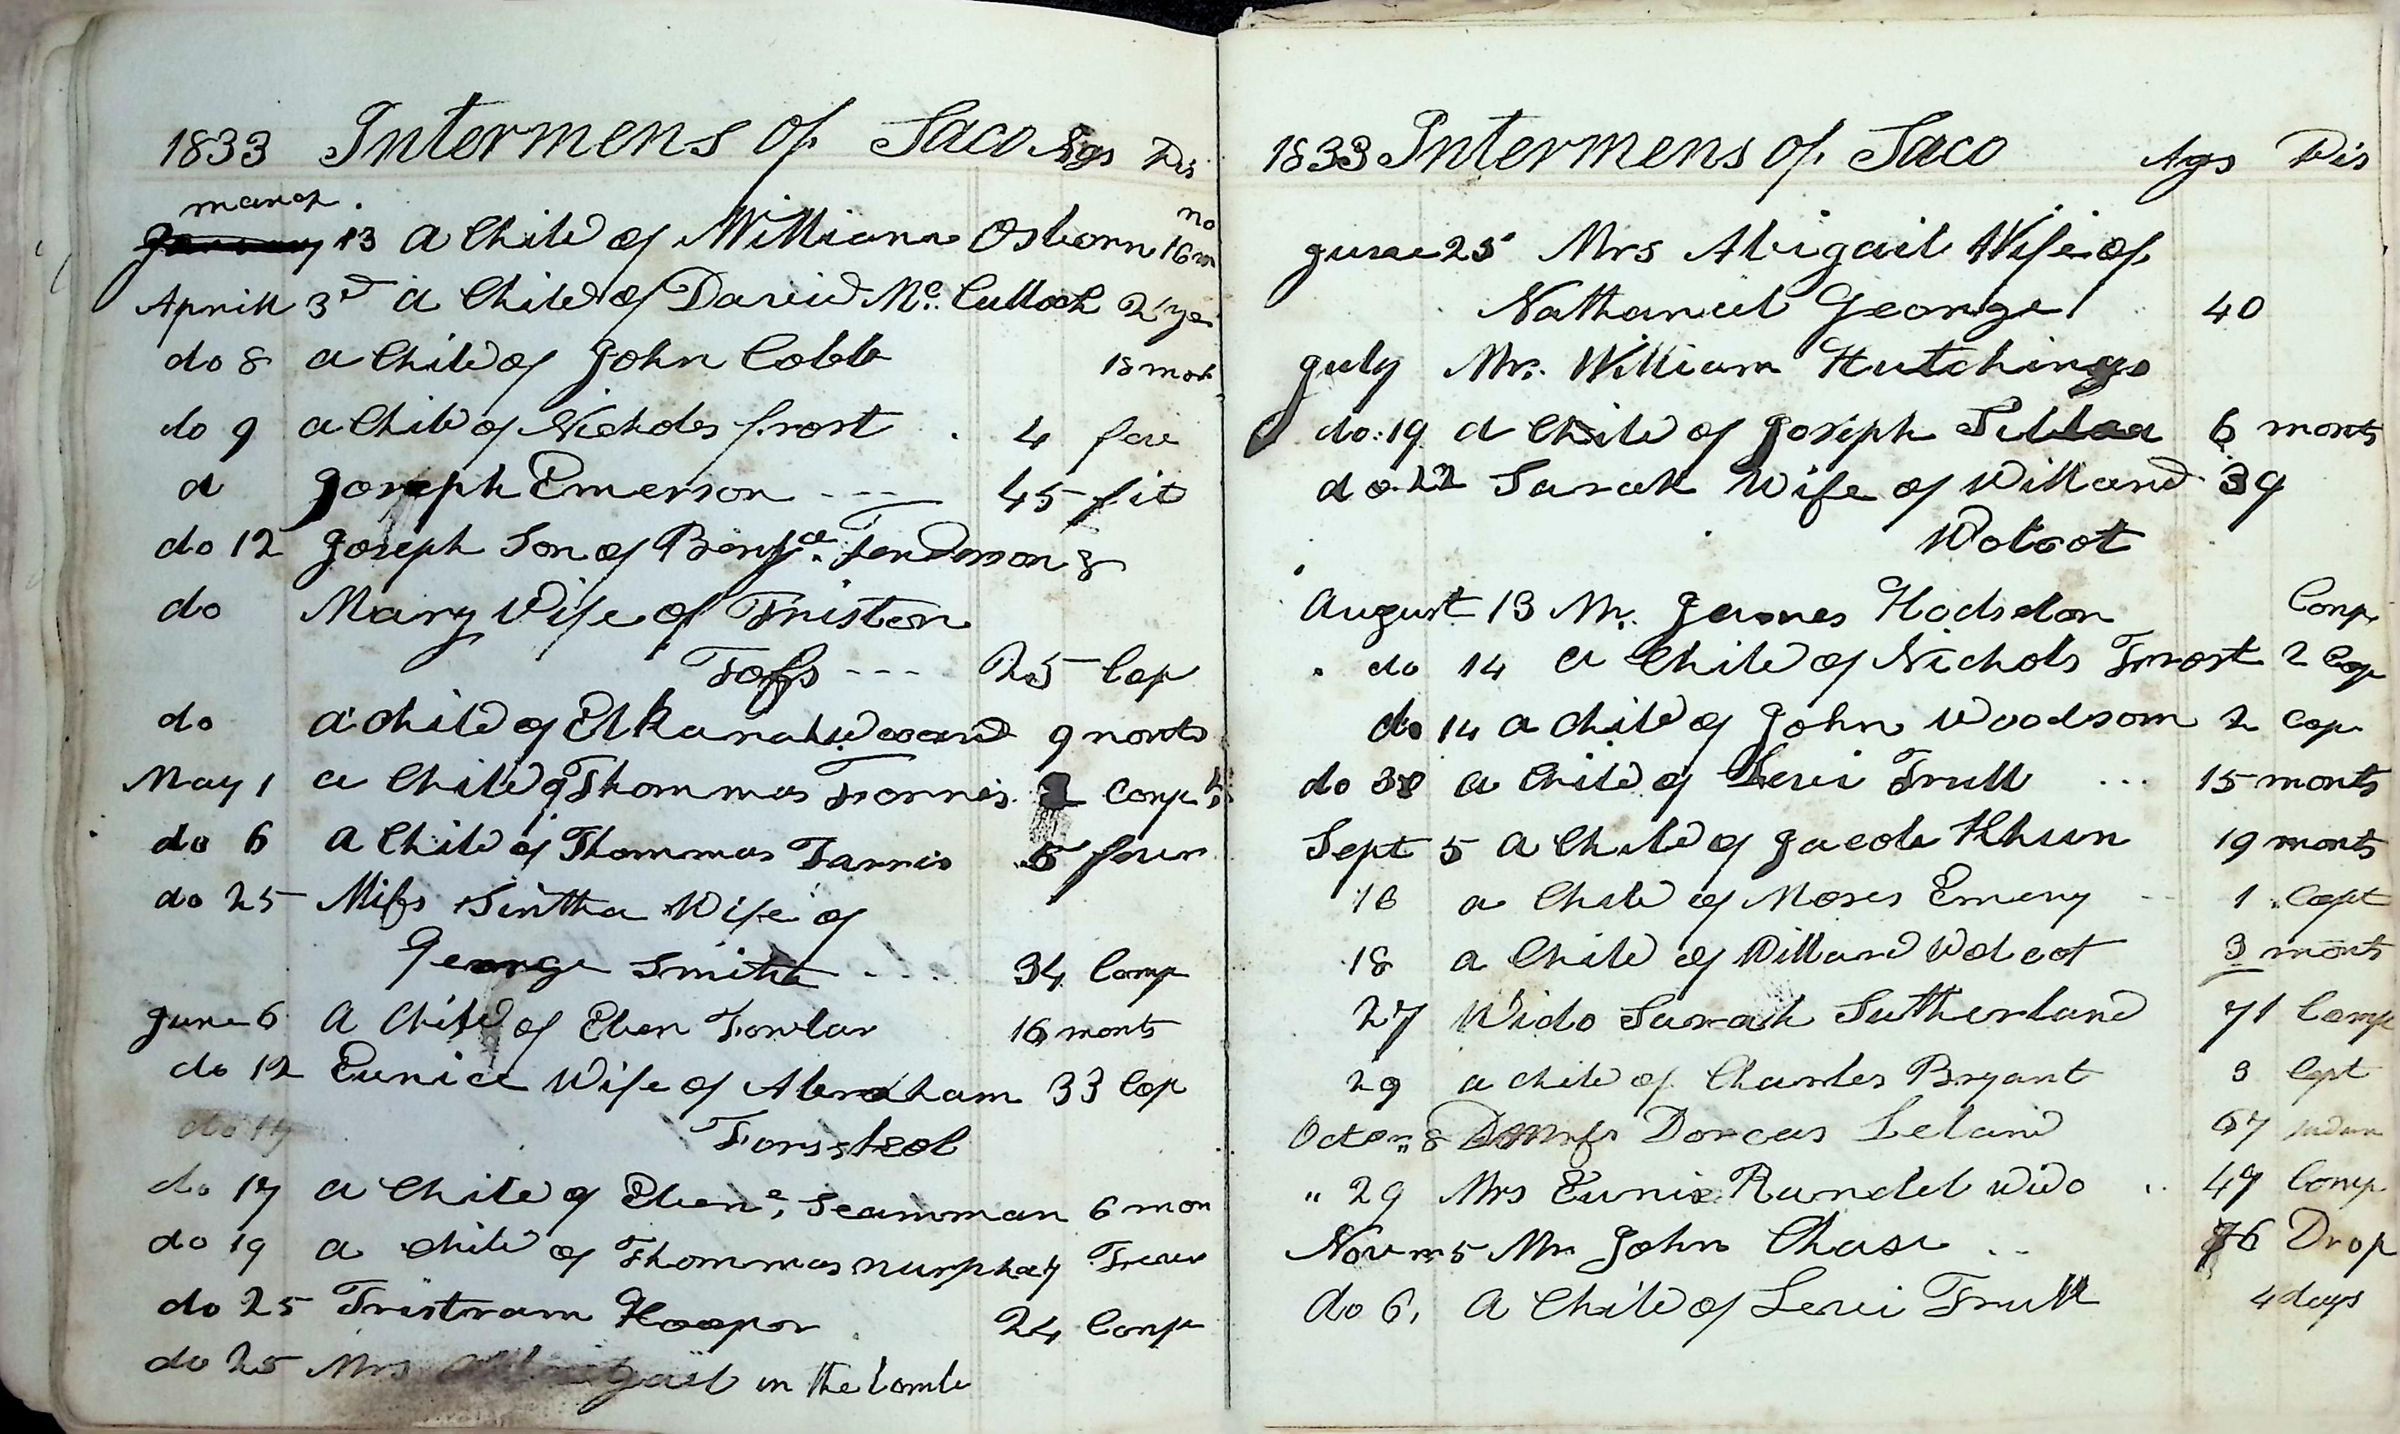 1833 Intermens of Saco Ags Dis
march
13 a Child of William Osborn 16 mo
Aprill 3d a Child of David Mc. Culloch 2 ye
do 8 a Child of John Cobb 18 mon
do 9 a Child of Nichols frost 4 fev
d Joseph Emerson 45 fit
do 12 Joseph Son of Benja. fenderson 8
do Mary Wife of Tristen
Foss --- 25 Cop
do a child of Elkanah 9 monts
May 1 a Child of Thommas Farris Conp
do 6 a Child of Thommas Farris 5 fever
do 25 Miss Sintha Wife of
George Smith .... 34 Comp
June 6 a Child of Eben Fowlar 16 monts
do 12 Eunice Wife of Abraham 33 Cop
Forsskol
do 17 a Child of Ebene, Seamman 6 mon
do 19 a child of Thommas murphay
do 25 Tristram Hooper 24 Conp
do 25 Mrs Abigail in the tomb
1833 Intermens of Saco Ags Dis
June 25 Mrs Abigail Wife of
Nathaniel George 40
July Mr. William Hutchings
do. 19 a Child of Joseph 6 monts
do. 22 Sarah Wife of Willard 39
Wolcot
August 13 Mr. James Hodsdon Conp
do 14 a Child of Nichols Frrost 2 Cop
do 14 a child of John Woodsom 2 Cop
do 30 a Child of Levi Trull ... 15 monts
Sept 5 a Child of Jacob Khun 19 monts
16 a Child of Moses Emery -- 1 Copt
18 a Child of Willard Wolcot 3 monts
27 Wido Sarah Sutherland 71 Comp
29 a child of Charles Bryant 3 Copt
Octo 8 Dorcas Leland 67
" 29 Mrs Eunis Rundel Wido .. 47 Comp
Novm 5 Mr John Chase .. 76 Drop
do 6, a Child of Levi Trull 4 days